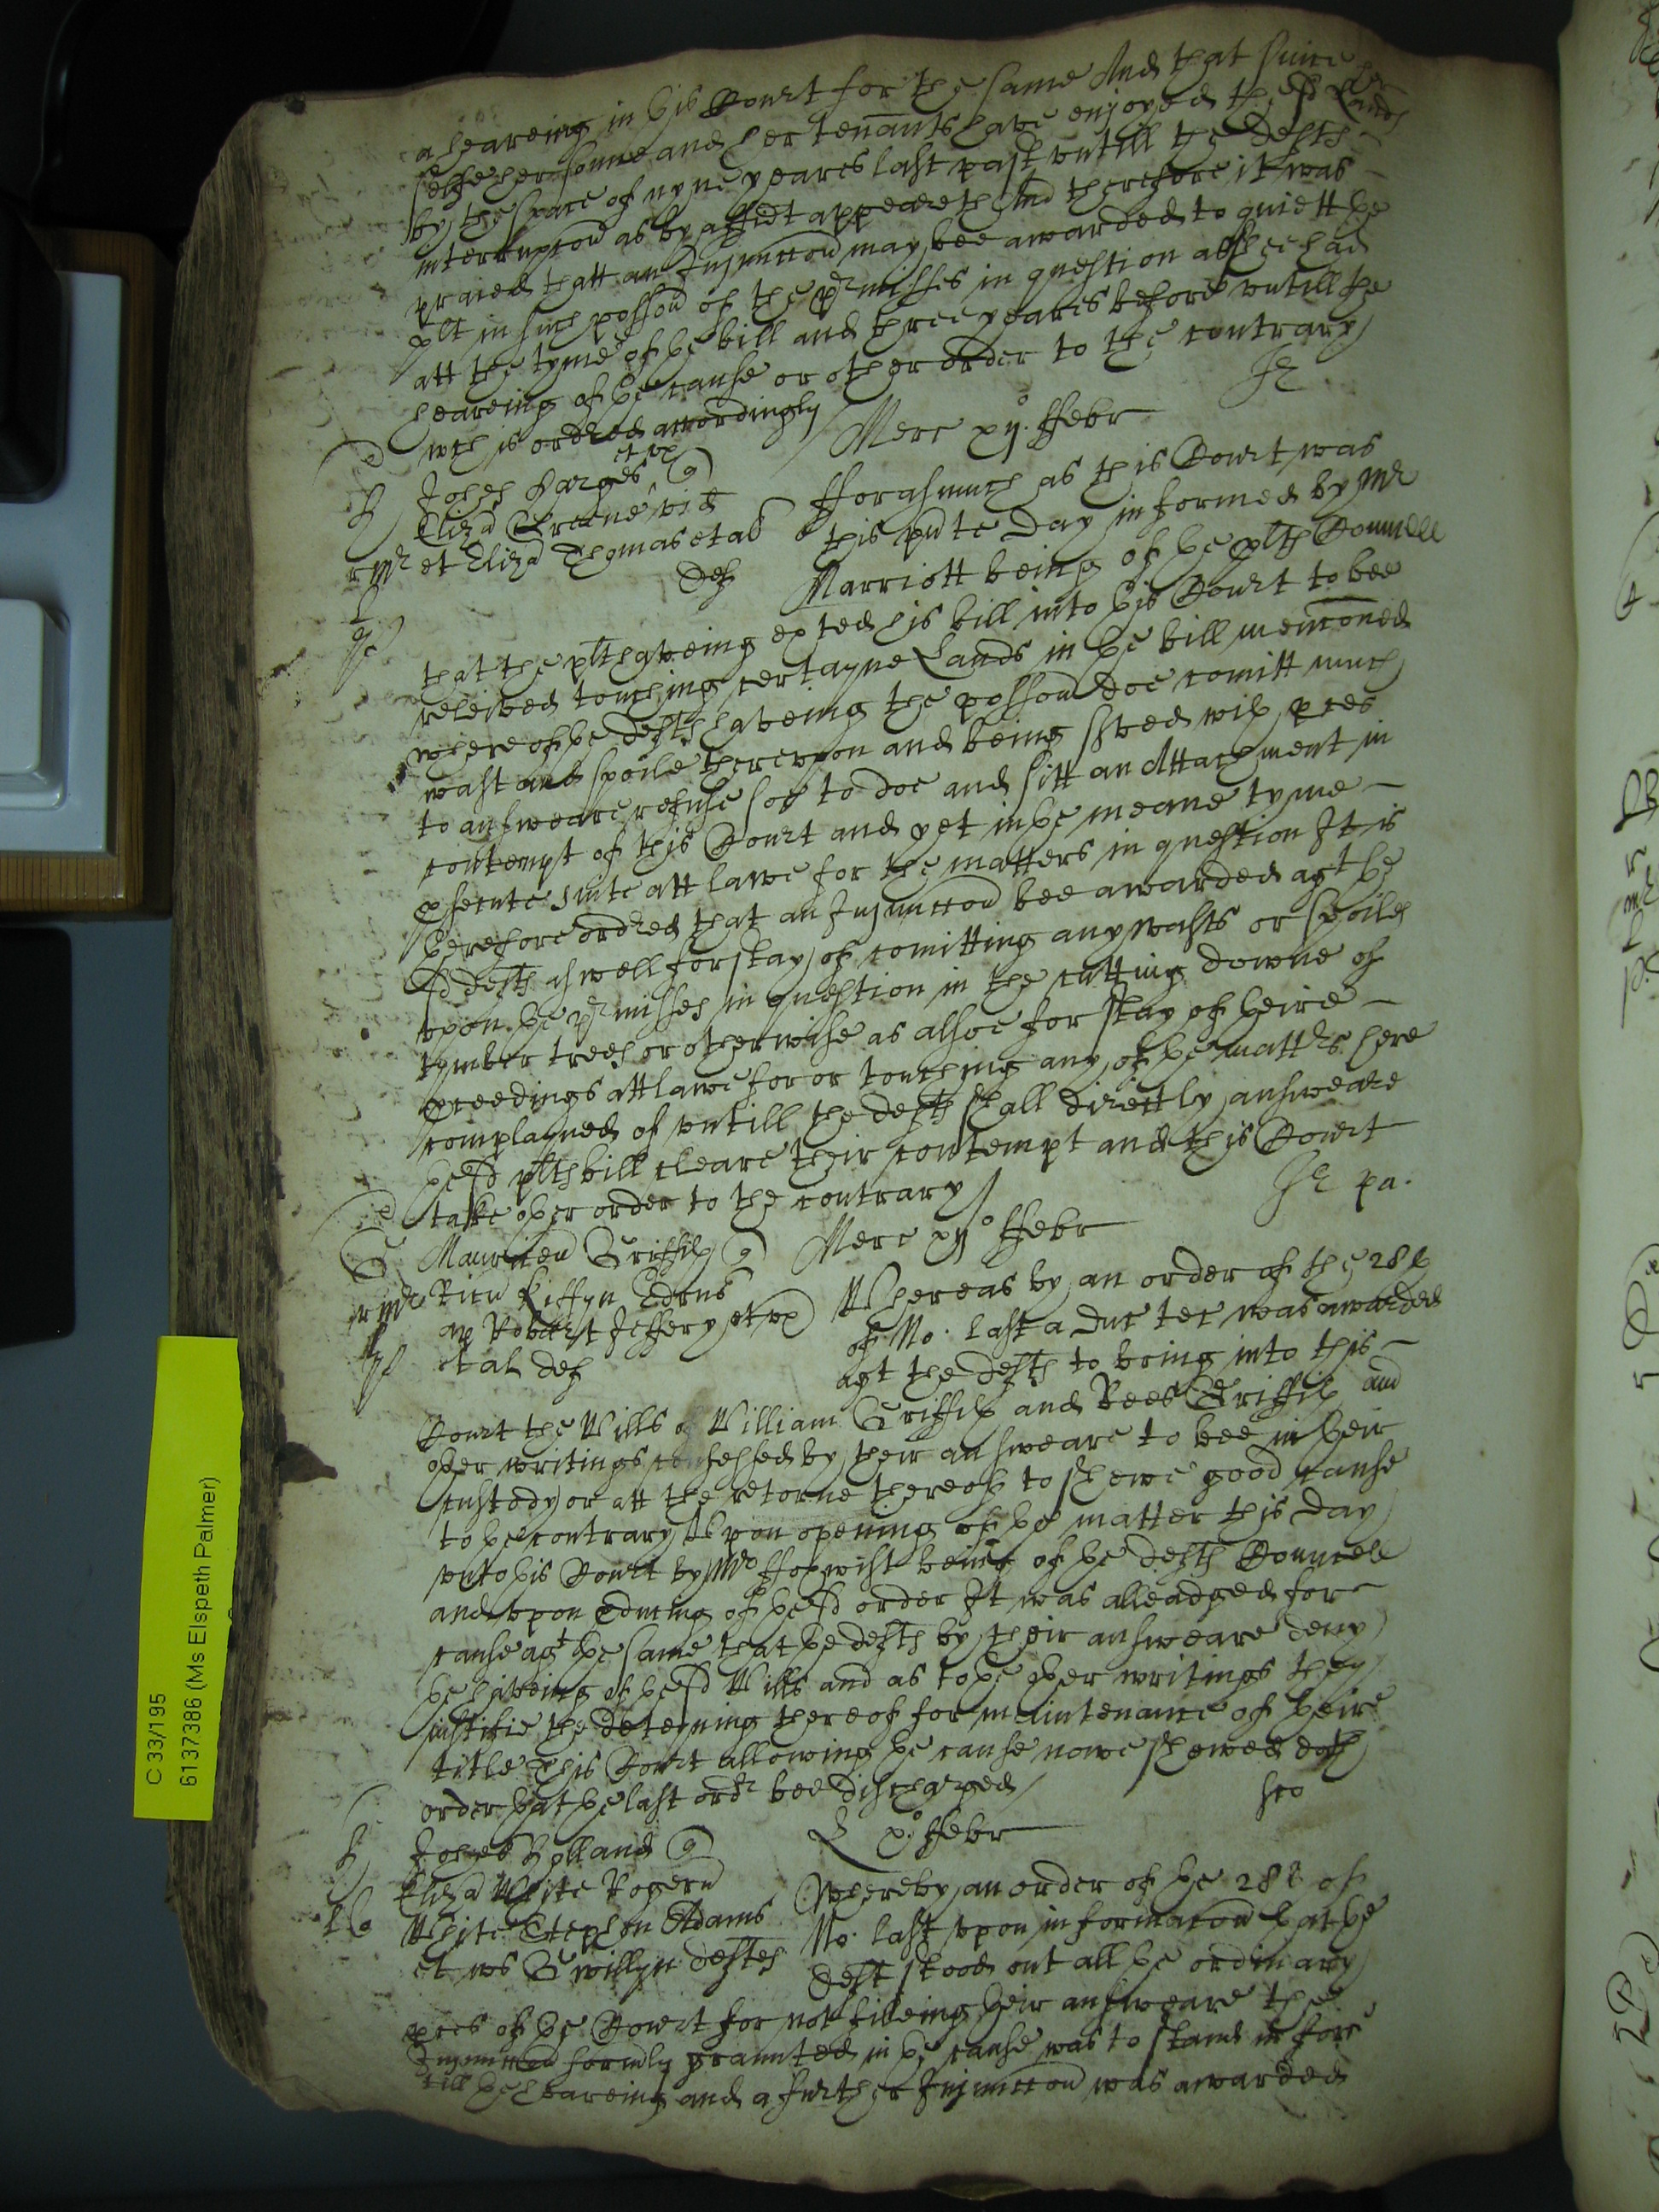 a heareing in this Court for the same And that since her
selfe her sonne and her tenants have enjoyed the sd Lands
by the space of nyne yeares last past untill the defts
interrupcon as by affidt appeareth And therefore it was
praied that an Injunccon may bee awarded to quiett the
plt in such possion of the premisses in question as shee had
att the tyme of the bill and three yeares before untill the
heareing of the cause or other order to the contrary
wch is ordred accordingly
Merc xijo. ffebr
Joseph et ux
Eliza Greene vid
et Eliza Thomas et al
def
fforasmuch as this Court was
this pnte day informed by Mr
Marriott being of the plts Councell
that the plt haveing exhted his bill into this Court to bee
releived touching certayne Lands in the bill menconed
whereof the defts haveing the possion doe comitt much
wast and spoile thereupon and being served with pces
to answeare refuse soe to doe and sitt an Attachment in
contempt of this Court and yet in the meane tyme
psecute suite att lawe for the matters in question It is
therefore ordred that an Injunccon bee awarded agt the
sd defts aswell for stay of comitting any wasts or spoiles
upon the premisses in question in the cutting downe of
tymber trees or otherwise as alsoe for stay of theire
pceedings att lawe for or touching any of the mattrs here
complayned of untill the defts shall directly answeare
the sd plts bill cleare their contempt and this Court
take other order to the contrary
pa.
Merc xijo ffebr
Griffith
Ricu Kiffyn Edrus
ap Robert Jeffery et ux
et al def
Whereas by an order of the 28th
of No. last a Duc tec was awarded
agt the defts to bring into this
Court the Wills of William Griffith and Rees Griffith and
other writings confessed by their answeare to bee in their
custody or att the retorne thereof to shewe good cause
to the contrary Upon opening of the matter this day
unto this Court by Mr being of the defts Councell
and upon of the sd order It was alleadged for
cause agt the same that the defts by their answeare deny
the haveing of the sd Wills and as to the other writings they
justifie the deteyning thereof for maintenance of their
title This Court allowing the cause nowe shewed doth
order that the last ordr bee discharged
xo. ffebr
Holland
Eliza White Rogeru
White Stephen Adams
et ux Gwillyn defts
Whereby an order of the 28th of
No. last upon informacon that the
deft stood out all the ordinary
pces of the Court for not fileing their answeare the
Injunccon formly graunted in the cause was to stand in force
till the heareing and a further Injunccon was awarded
C 33/195
6137386 (Ms Elspeth Palmer)